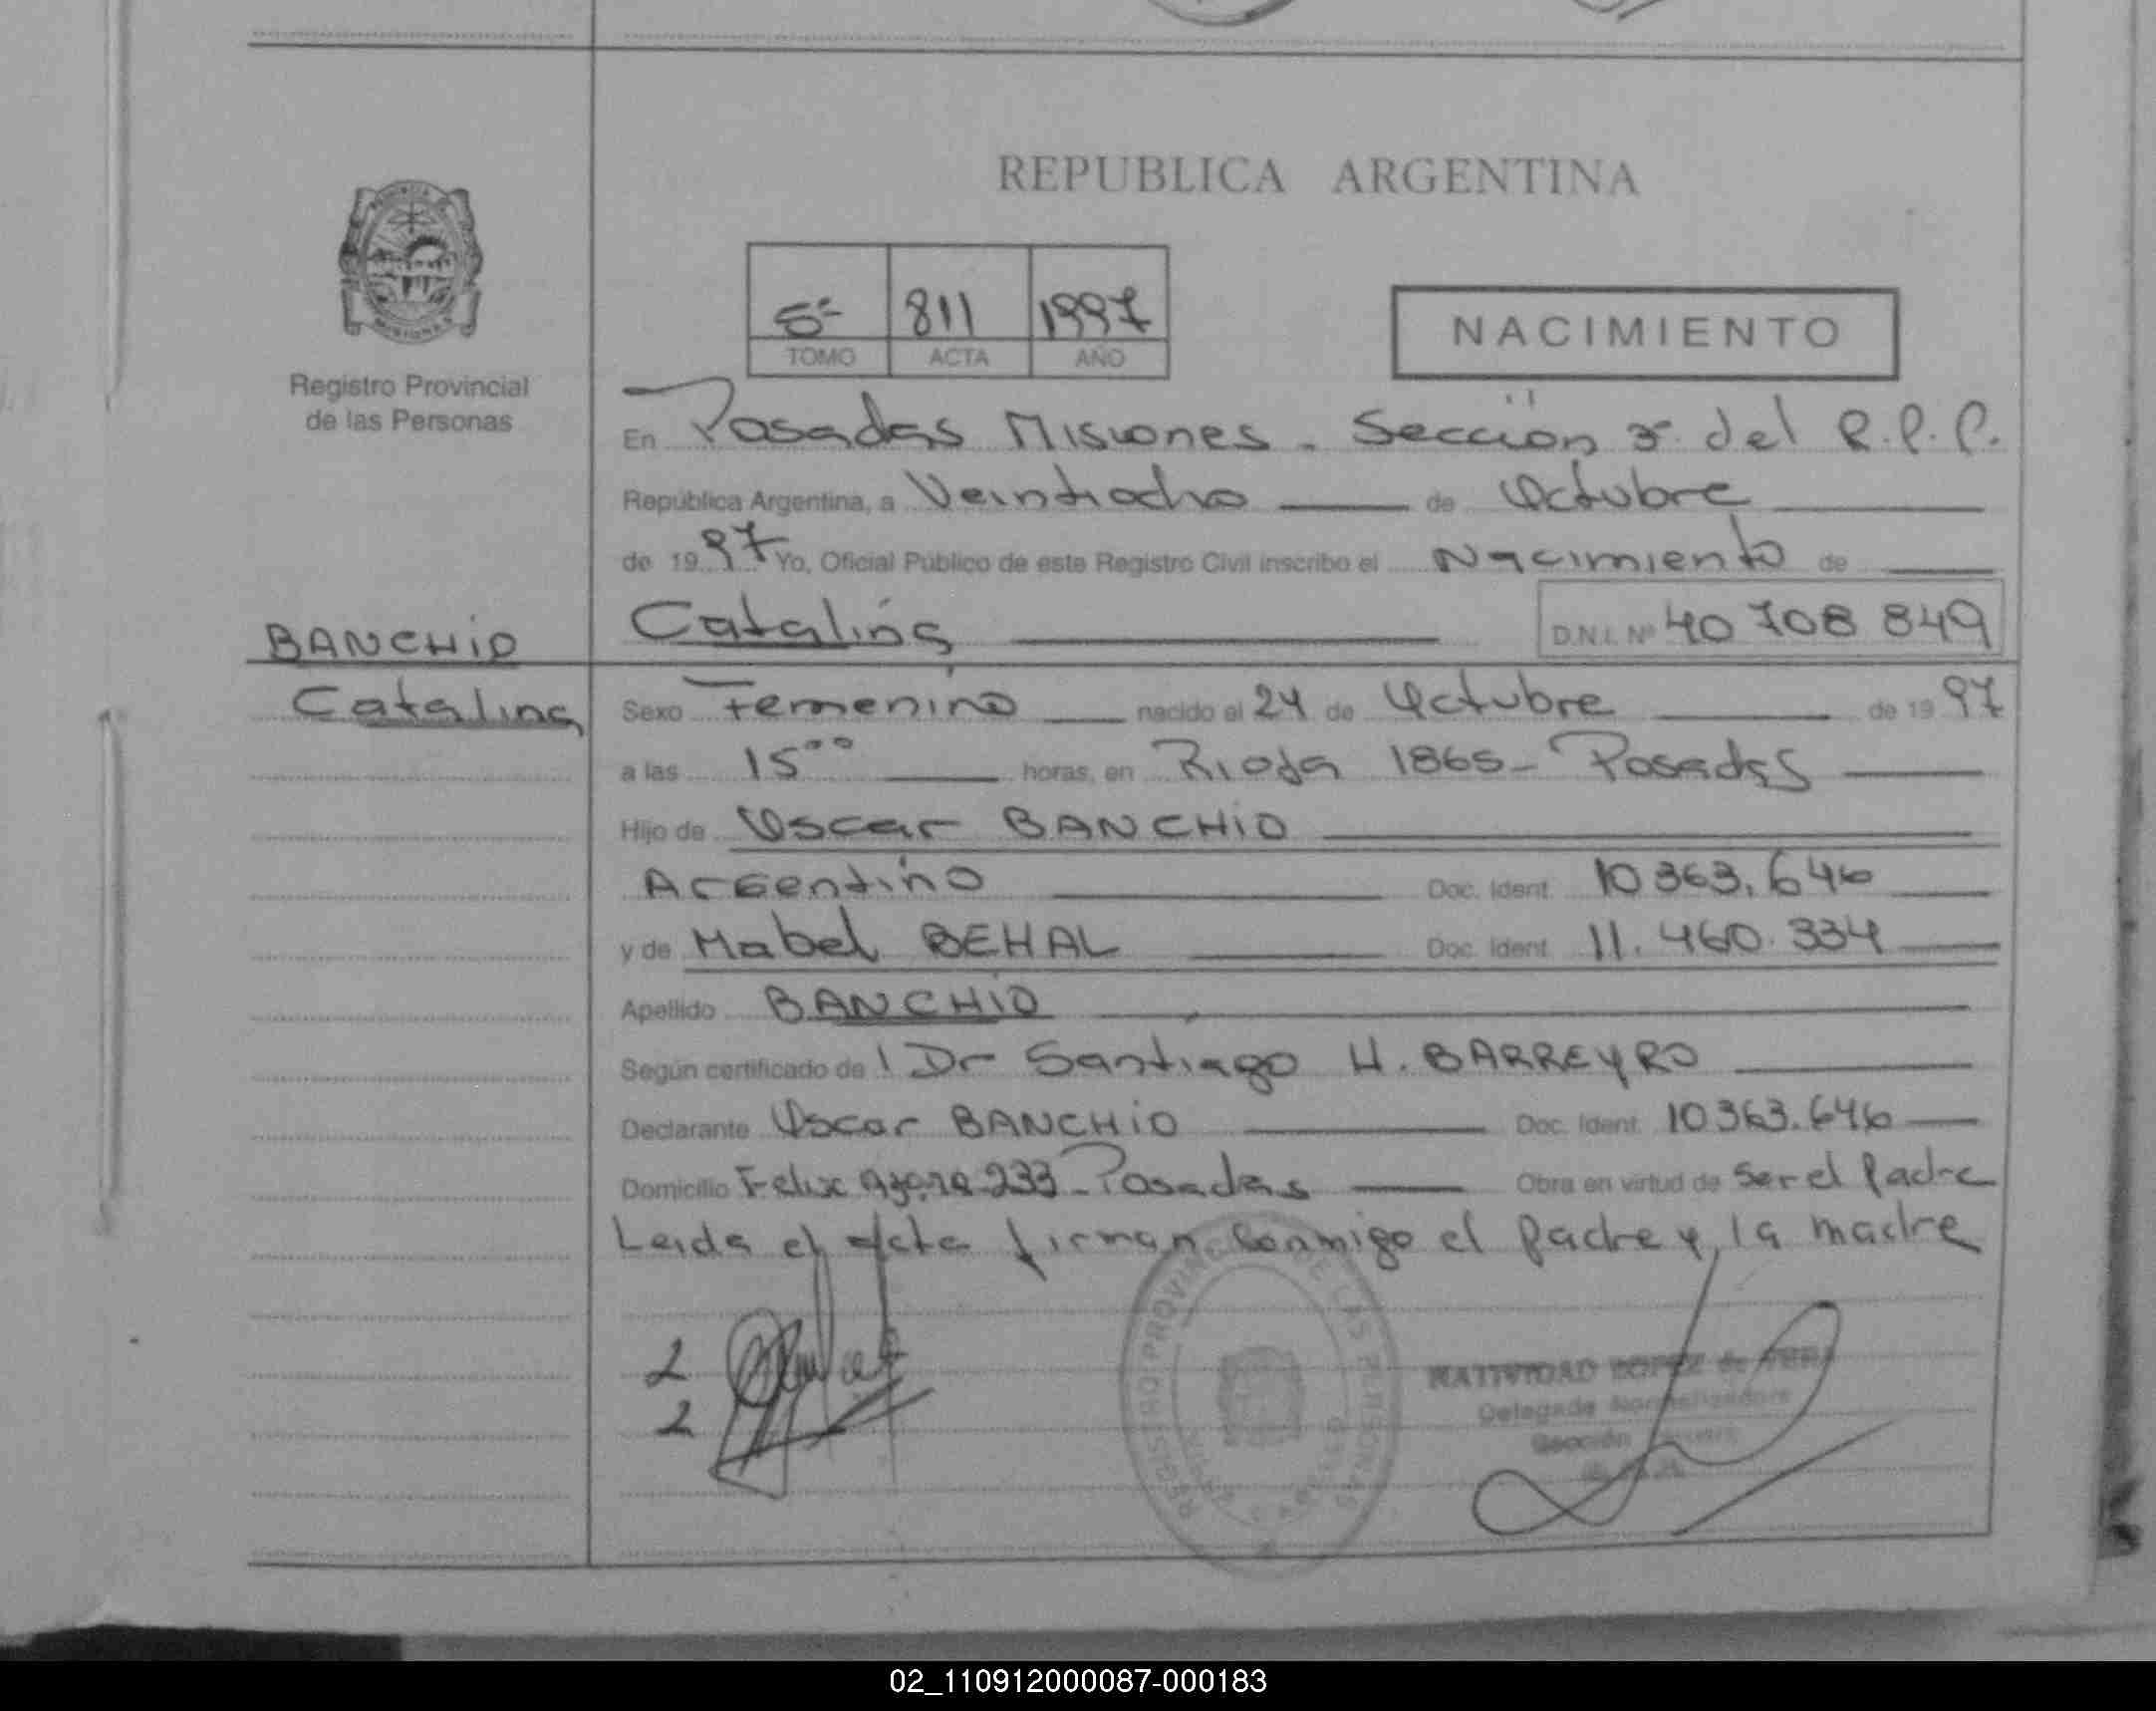 REPUBLICA ARGENTINA
5º 811 1997
TOMO ACTA AÑO
NACIMIENTO
Registro Provincial
de las Personas
En Posadas Misiones - Sección 3ª del R.P.P.
República Argentina, a Veintiocho de Octubre
de 1997 Yo, Oficial Público de este Registro Civil inscribo el Nacimiento de
BANCHIO
Catalina D.N.I. Nº 40 708 849
Catalina
Sexo Femenino nacido el 24 de Octubre de 1997
a las 15⁰⁰ horas, en Rioja 1865 - Posadas
Hijo de Oscar BANCHIO
Argentino Doc. Ident. 10363.646
y de Mabel BEHAL Doc. Ident. 11.460.334
Apellido BANCHIO
Según certificado de l Dr Santiago H. BARREYRO
Declarante Oscar BANCHIO Doc. Ident. 10363.646
Domicilio Felix Azara 233 - Posadas Obra en virtud de ser el Padre
Leida el acta firman conmigo el padre y la madre
REGISTRO PROVINCIAL DE LAS PERSONAS
NATIVIDAD LOPEZ de
Delegada Normalizadora
Sección
02_110912000087-000183